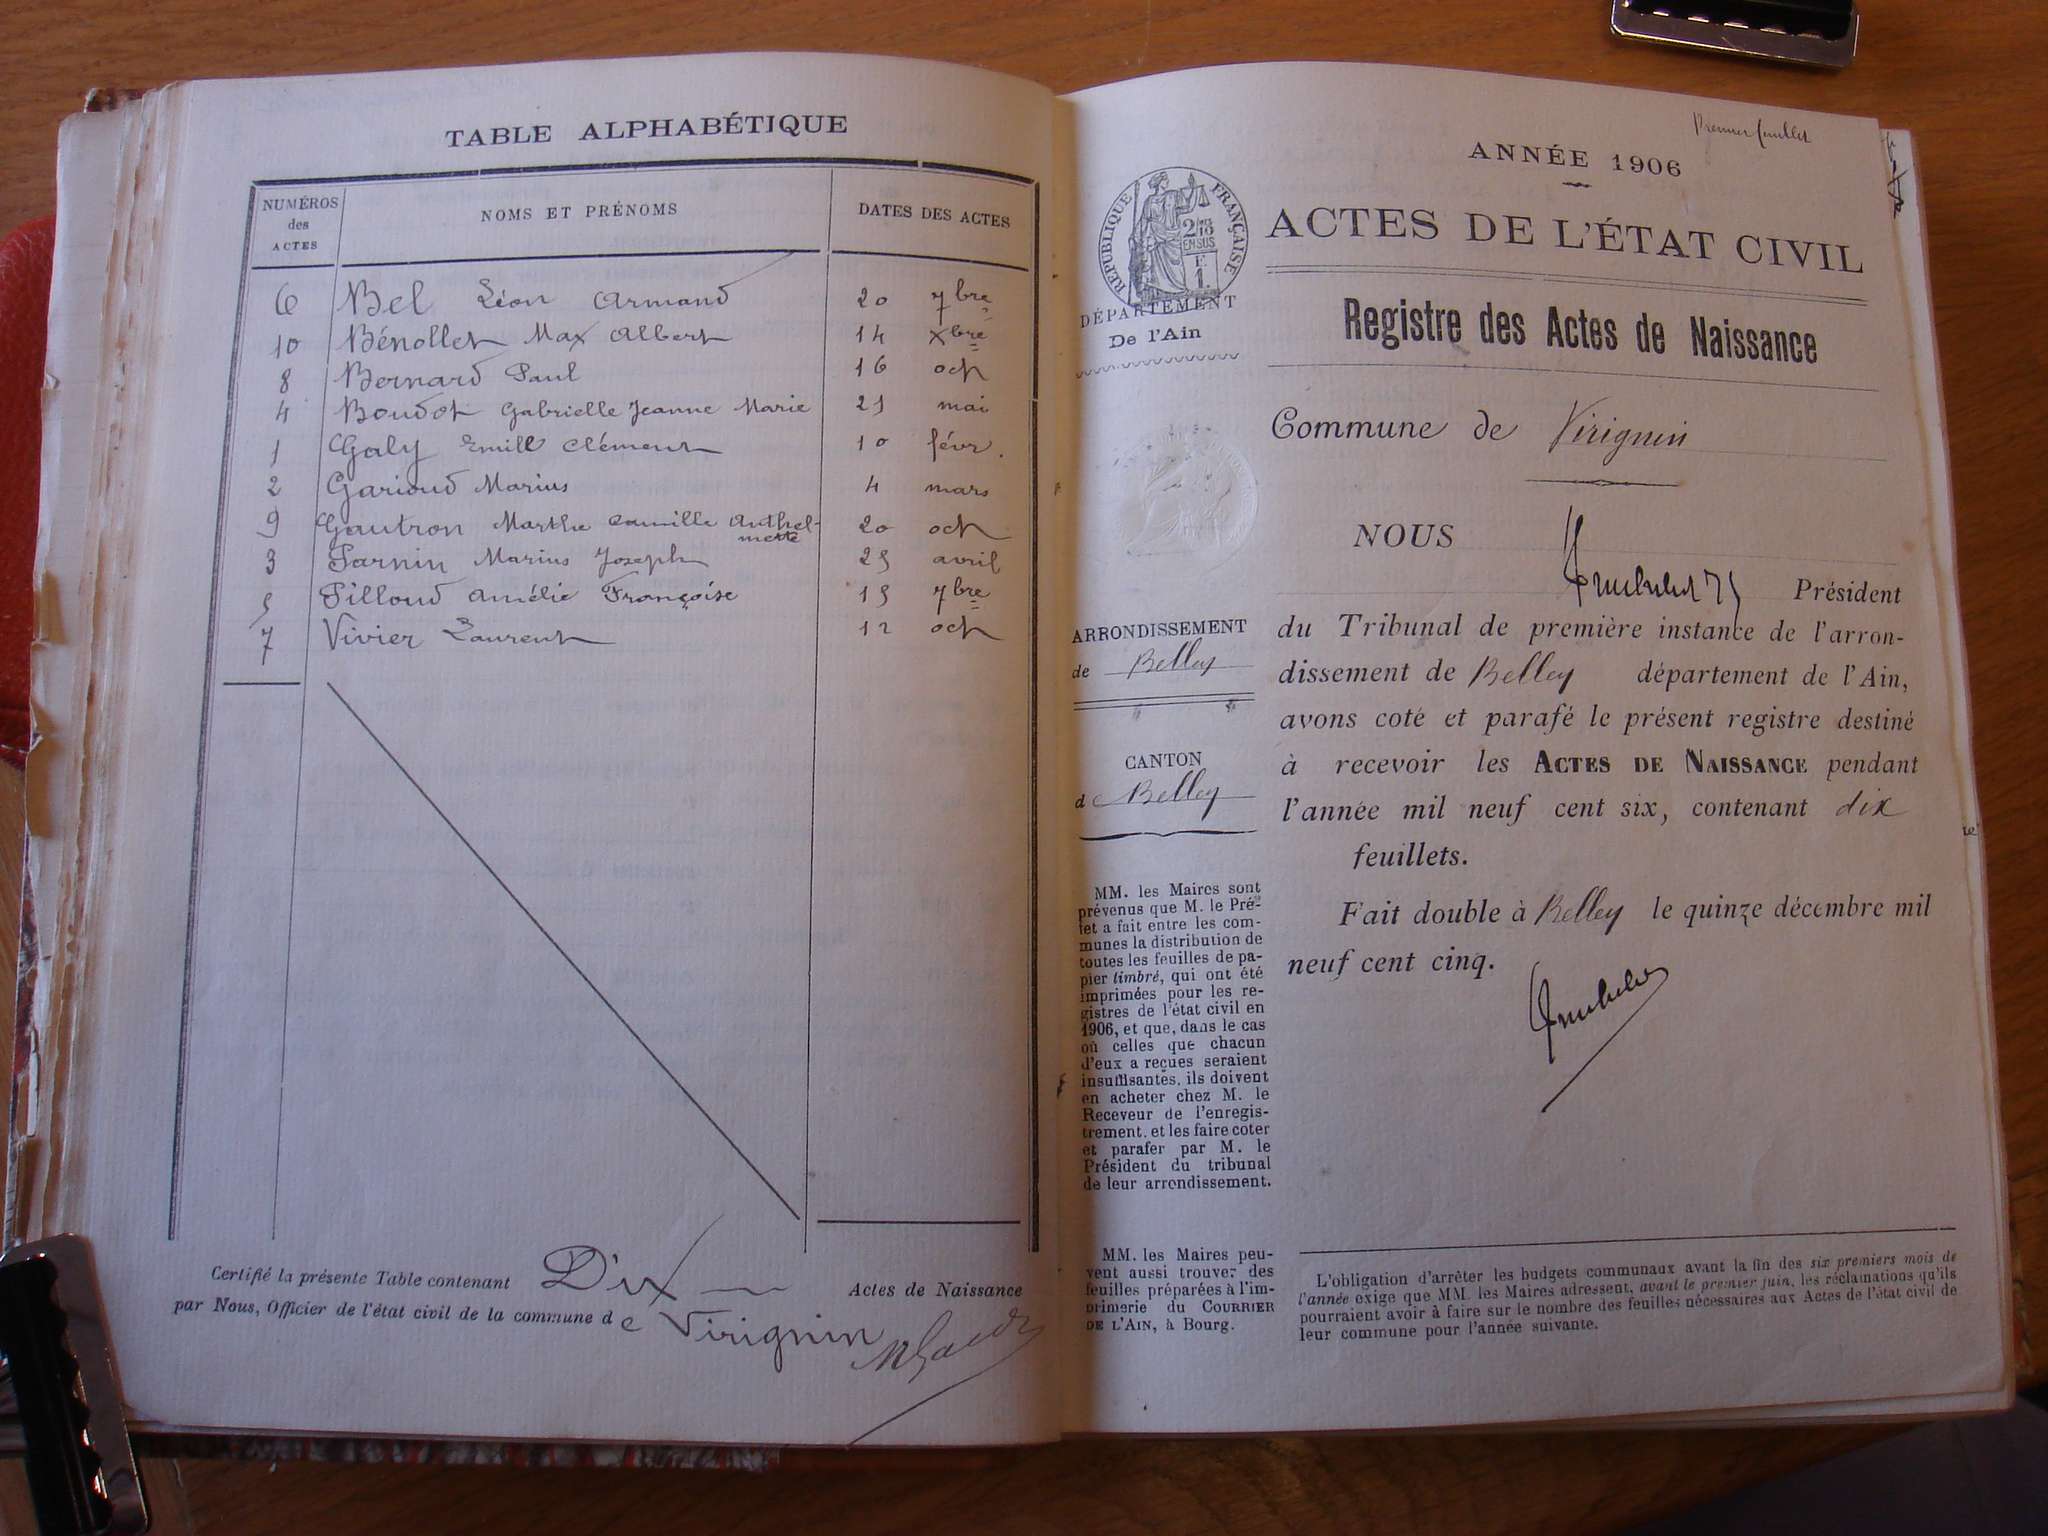 TABLE ALPHABÉTIQUE
NUMÉROS des ACTES
NOMS ET PRÉNOMS
DATES DES ACTES
6 Bel Léon Armand 20 7bre
10 Bénollet Max Albert 14 Xbre
8 Bernard Paul 16 oct
4 Boudot Gabrielle Jeanne Marie 21 mai
1 Galy Emile Clément 10 févr.
2 Garioud Marius 4 mars
9 Gautron Marthe Camille Anthel-
mette 20 oct
3 Parnin Marius Joseph 25 avril
5 Pilloud Amélie Françoise 15 7bre
7 Vivier Laurent 12 oct
Certifié la présente Table contenant Dix Actes de Naissance
par Nous, Officier de l'état civil de la commune de Virignin
Premier feuillet
ANNÉE 1906
RÉPUBLIQUE FRANÇAISE
2/10 EN SUS
1 F.
ACTES DE L'ÉTAT CIVIL
DÉPARTEMENT
De l'Ain
Registre des Actes de Naissance
Commune de Virignin
NOUS
Président
ARRONDISSEMENT
de Belley
CANTON
de Belley
du Tribunal de première instance de l'arron-
dissement de Belley département de l'Ain,
avons coté et parafé le présent registre destiné
à recevoir les ACTES DE NAISSANCE pendant
l'année mil neuf cent six, contenant dix
feuillets.
Fait double à Belley le quinze décembre mil
neuf cent cinq.
MM. les Maires sont
prévenus que M. le Pré-
fet a fait entre les com-
munes la distribution de
toutes les feuilles de pa-
pier timbré, qui ont été
imprimées pour les re-
gistres de l'état civil en
1906, et que, dans le cas
où celles que chacun
d'eux a reçues seraient
insuffisantes, ils doivent
en acheter chez M. le
Receveur de l'enregis-
trement, et les faire coter
et parafer par M. le
Président du tribunal
de leur arrondissement.
MM. les Maires peu-
vent aussi trouver des
feuilles préparées à l'im-
primerie du COURRIER
DE L'AIN, à Bourg.
L'obligation d'arrêter les budgets communaux avant la fin des six premiers mois de
l'année exige que MM. les Maires adressent, avant le premier juin, les réclamations qu'ils
pourraient avoir à faire sur le nombre des feuilles nécessaires aux Actes de l'état civil de
leur commune pour l'année suivante.